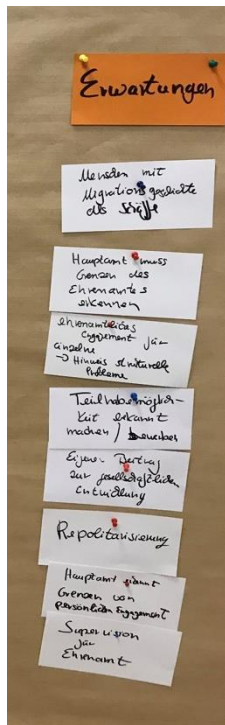 Erwartungen
Menschen mit
Migrationsgeschichte
als
Hauptamt muss
Grenzen des
Ehrenamtes
erkennen
ehrenamtliches
Engagement für
einzelne
→ Hinweis strukturelle
Probleme
Teilhabemöglich-
keit erkannt
machen /
Eigener Beitrag
zur gesellschaftlichen
Entwicklung
Repolitisierung
Hauptamt
Grenzen von
persönlichem Engagement
Supervision
für
Ehrenamt